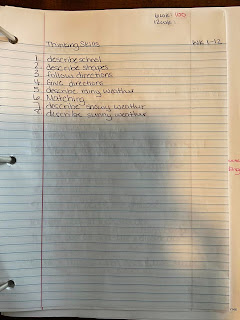 Thinking Skills
WK 1-12
1 describe school
2 describe shapes
3 follow directions
4 Give directions
5 describe rainy weather
6 Matching
7 describe snowy weather
8 describe sunny weather